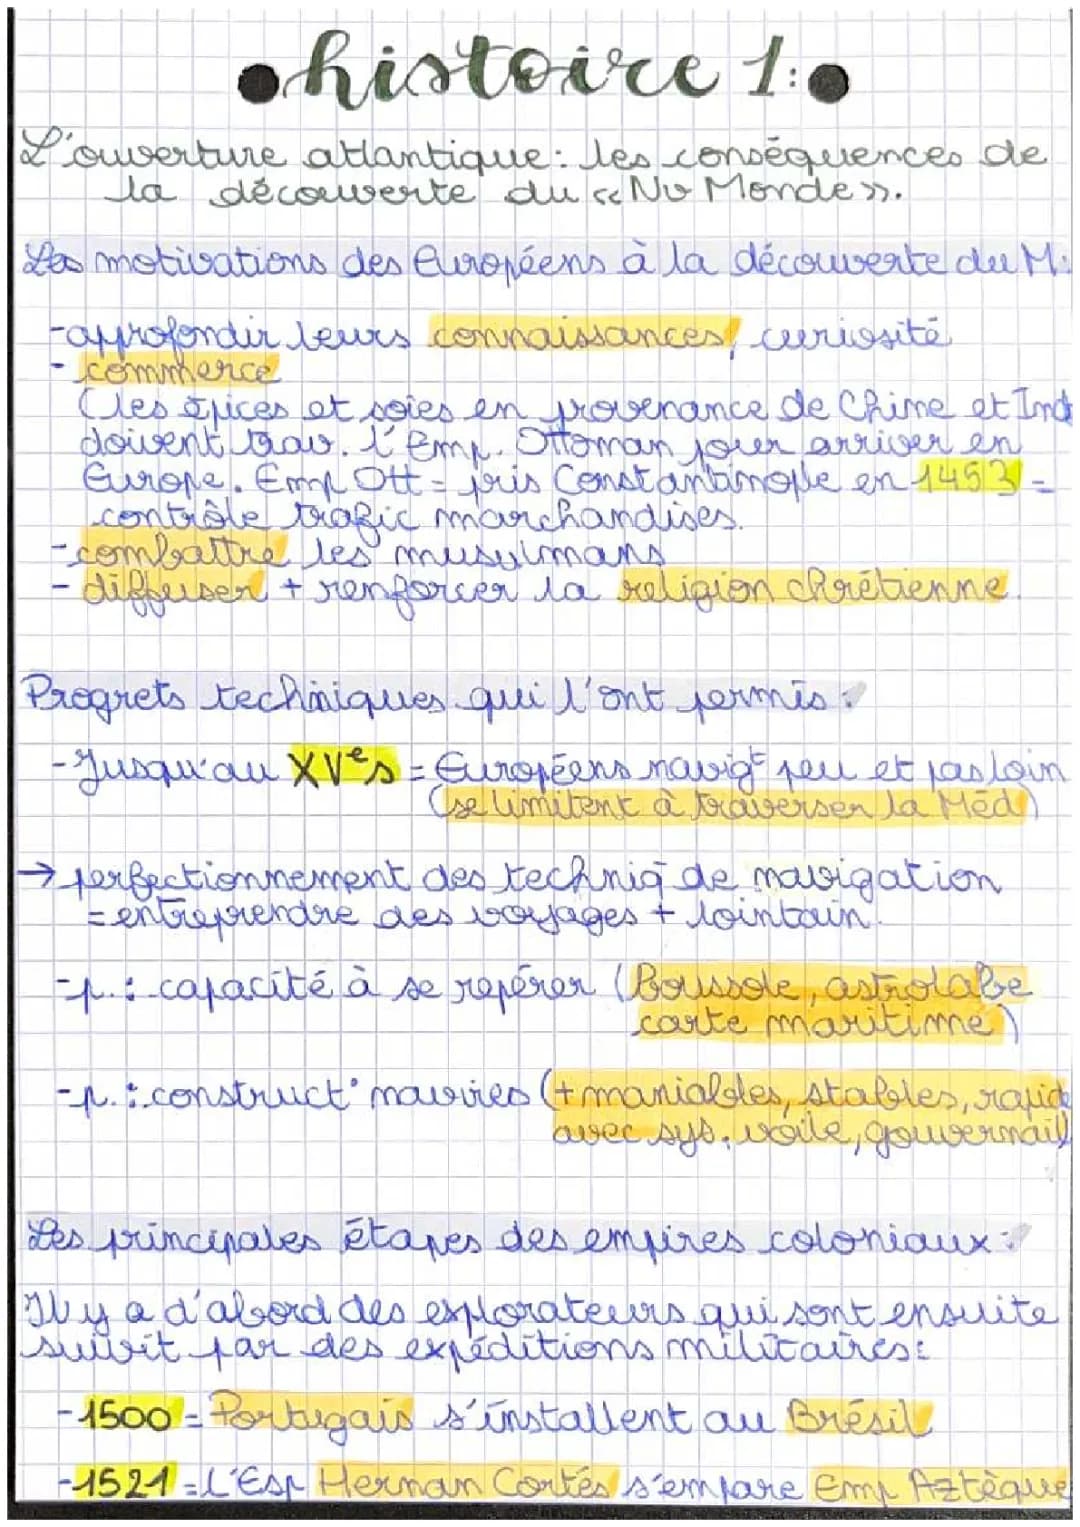 •histoire 1:•
L'ouverture atlantique: les conséquences de
la découverte du «Nv Monde».
Les motivations des Européens à la découverte du M:
-approfondir leurs connaissances, curiosité
- commerce
(les épices et soies en provenance de Chine et Ind
doivent trav. l'Emp. Ottoman pour arriver en
Europe. Emp Ott = pris Constantinople en 1453 =
contrôle trafic marchandises.
-combattre les musulmans
- diffuser + renforcer la religion chrétienne.
Progrets techniques qui l'ont permis:
-Jusqu'au XVe s = Européens navigt peu et pas loin
(se limitent à traverser la Méd)
→ perfectionnement des techniq de navigation
= entreprendre des voyages + lointain.
-p.: capacité à se repérer (Boussole, astrolabe
carte maritime)
-p.: construct° navires (+ maniables, stables, rapide
avec sys. voile, gouvernail
Les principales étapes des empires coloniaux:
Il y a d'abord des explorateurs qui sont ensuite
suivit par des expéditions militaires:
-1500 = Portugais s'installent au Brésil
-1521 = L'Esp Hernan Cortés s'empare Emp Aztèque